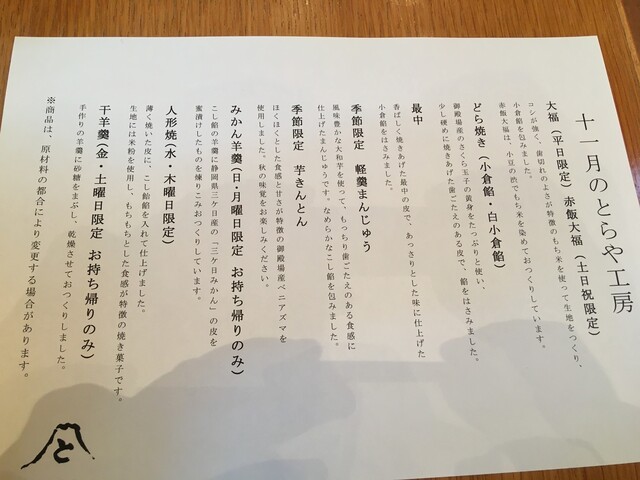 十一月のとらや工房
大福（平日限定）赤飯大福（土日祝限定）
コシが強く、歯切れのよさが特徴のもち米を使って生地をつくり、
小倉餡を包みました。
赤飯大福は、小豆の渋でもち米を染めておつくりしています。
どら焼き（小倉餡・白小倉餡）
御殿場産のさくら玉子の黄身をたっぷりと使い、
少し硬めに焼きあげた歯ごたえのある皮で、餡をはさみました。
最中
香ばしく焼きあげた最中の皮で、あっさりとした味に仕上げた
小倉餡をはさみました。
季節限定　軽羹まんじゅう
風味豊かな大和芋を使って、もっちり歯ごたえのある食感に
仕上げたまんじゅうです。なめらかなこし餡を包みました。
季節限定　芋きんとん
ほくほくとした食感と甘さが特徴の御殿場産ベニアズマを
使用しました。秋の味覚をお楽しみください。
みかん羊羹（日・月曜日限定　お持ち帰りのみ）
こし餡の羊羹に静岡県三ケ日産の「三ケ日みかん」の皮を
蜜漬けしたものを練りこみおつくりしています。
人形焼（水・木曜日限定）
薄く焼いた皮に、こし飴餡を入れて仕上げました。
生地には米粉を使用し、もちもちとした食感が特徴の焼き菓子です。
干羊羹（金・土曜日限定　お持ち帰りのみ）
手作りの羊羹に砂糖をまぶし、乾燥させておつくりしました。
※商品は、原材料の都合により変更する場合があります。
と